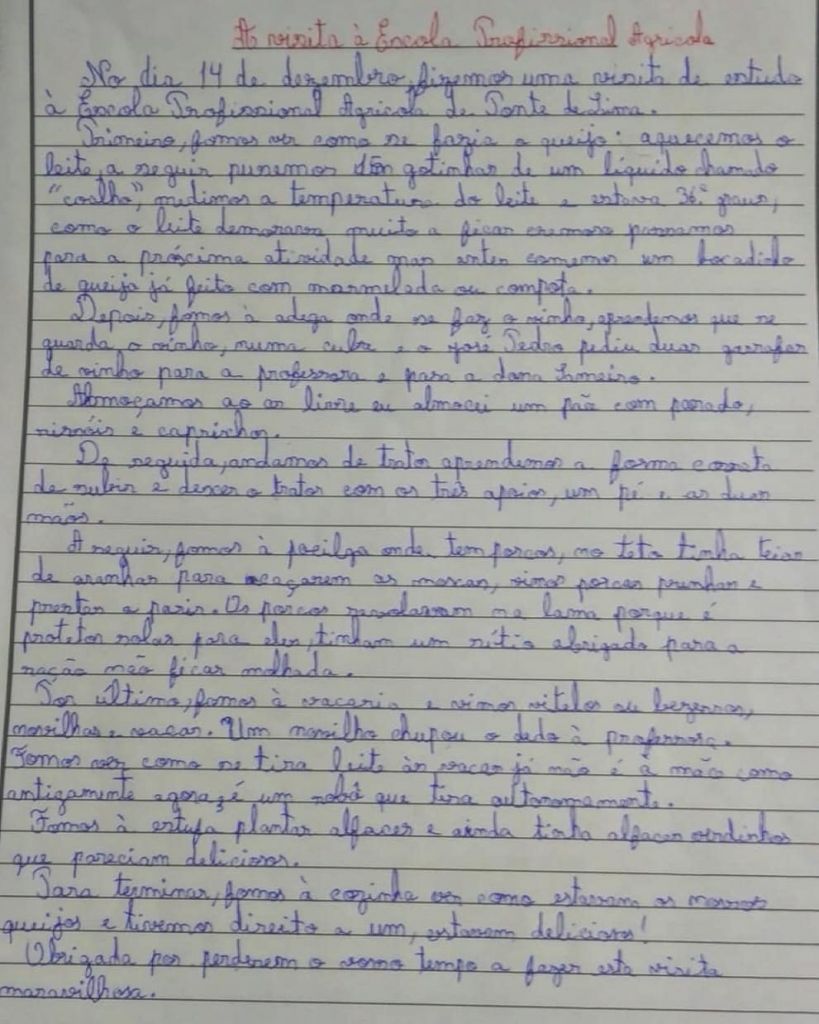 A visita à Escola Profissional Agricola
No dia 14 de dezembro, fizemos uma visita de estudo
à Escola Profissional Agricola de Ponte de Lima.
Primeiro, fomos ver como se fazia o queijo: aquecemos o
leite, a seguir pusemos gotinhas de um líquido chamado
"coalho", medimos a temperatura do leite e estava 36° graus,
como o leite demorava muito a ficar cremoso passamos
para a próscima atividade mas antes comemos um bocadinho
de queijo já feito com marmelada ou compota.
Depois, fomos à adega onde se faz o vinho, aprendemos que se
guarda o vinho, numa cuba e o José Pedro pediu duas garrafas
de vinho para a professora e para a dona
Almoçamos ao ar livre eu almocei um pão com panado,
rissóis e caprichos.
De seguida, andamos de trator aprendemos a forma correta
de subir e descer o trator com os três apoios, um pé e as duas
mãos.
A seguir, fomos à pocilga onde tem porcos, no teto tinha teias
de aranhas para caçarem as moscas, vimos porcas prenhas e
prontas a parir. Os porcos rebolavam na lama porque é
protetor solar para eles, tinham um sítio abrigado para a
ração não ficar molhada.
Por último, fomos à vacaria e vimos vitelos ou bezerros,
novilhas e vacas. Um novilho chupou o dedo à professora.
Fomos ver como se tira leite às vacas já não é à mão como
antigamente agora é um robô que tira autonomamente.
Fomos à estufa plantar alfaces e ainda tinha alfaces verdinhas
que pareciam deliciosas.
Para terminar, fomos à cozinha ver como estavam os nossos
queijos e tivemos direito a um, estavam deliciosos!
Obrigada por perderem o vosso tempo a fazer esta visita
maravilhosa.